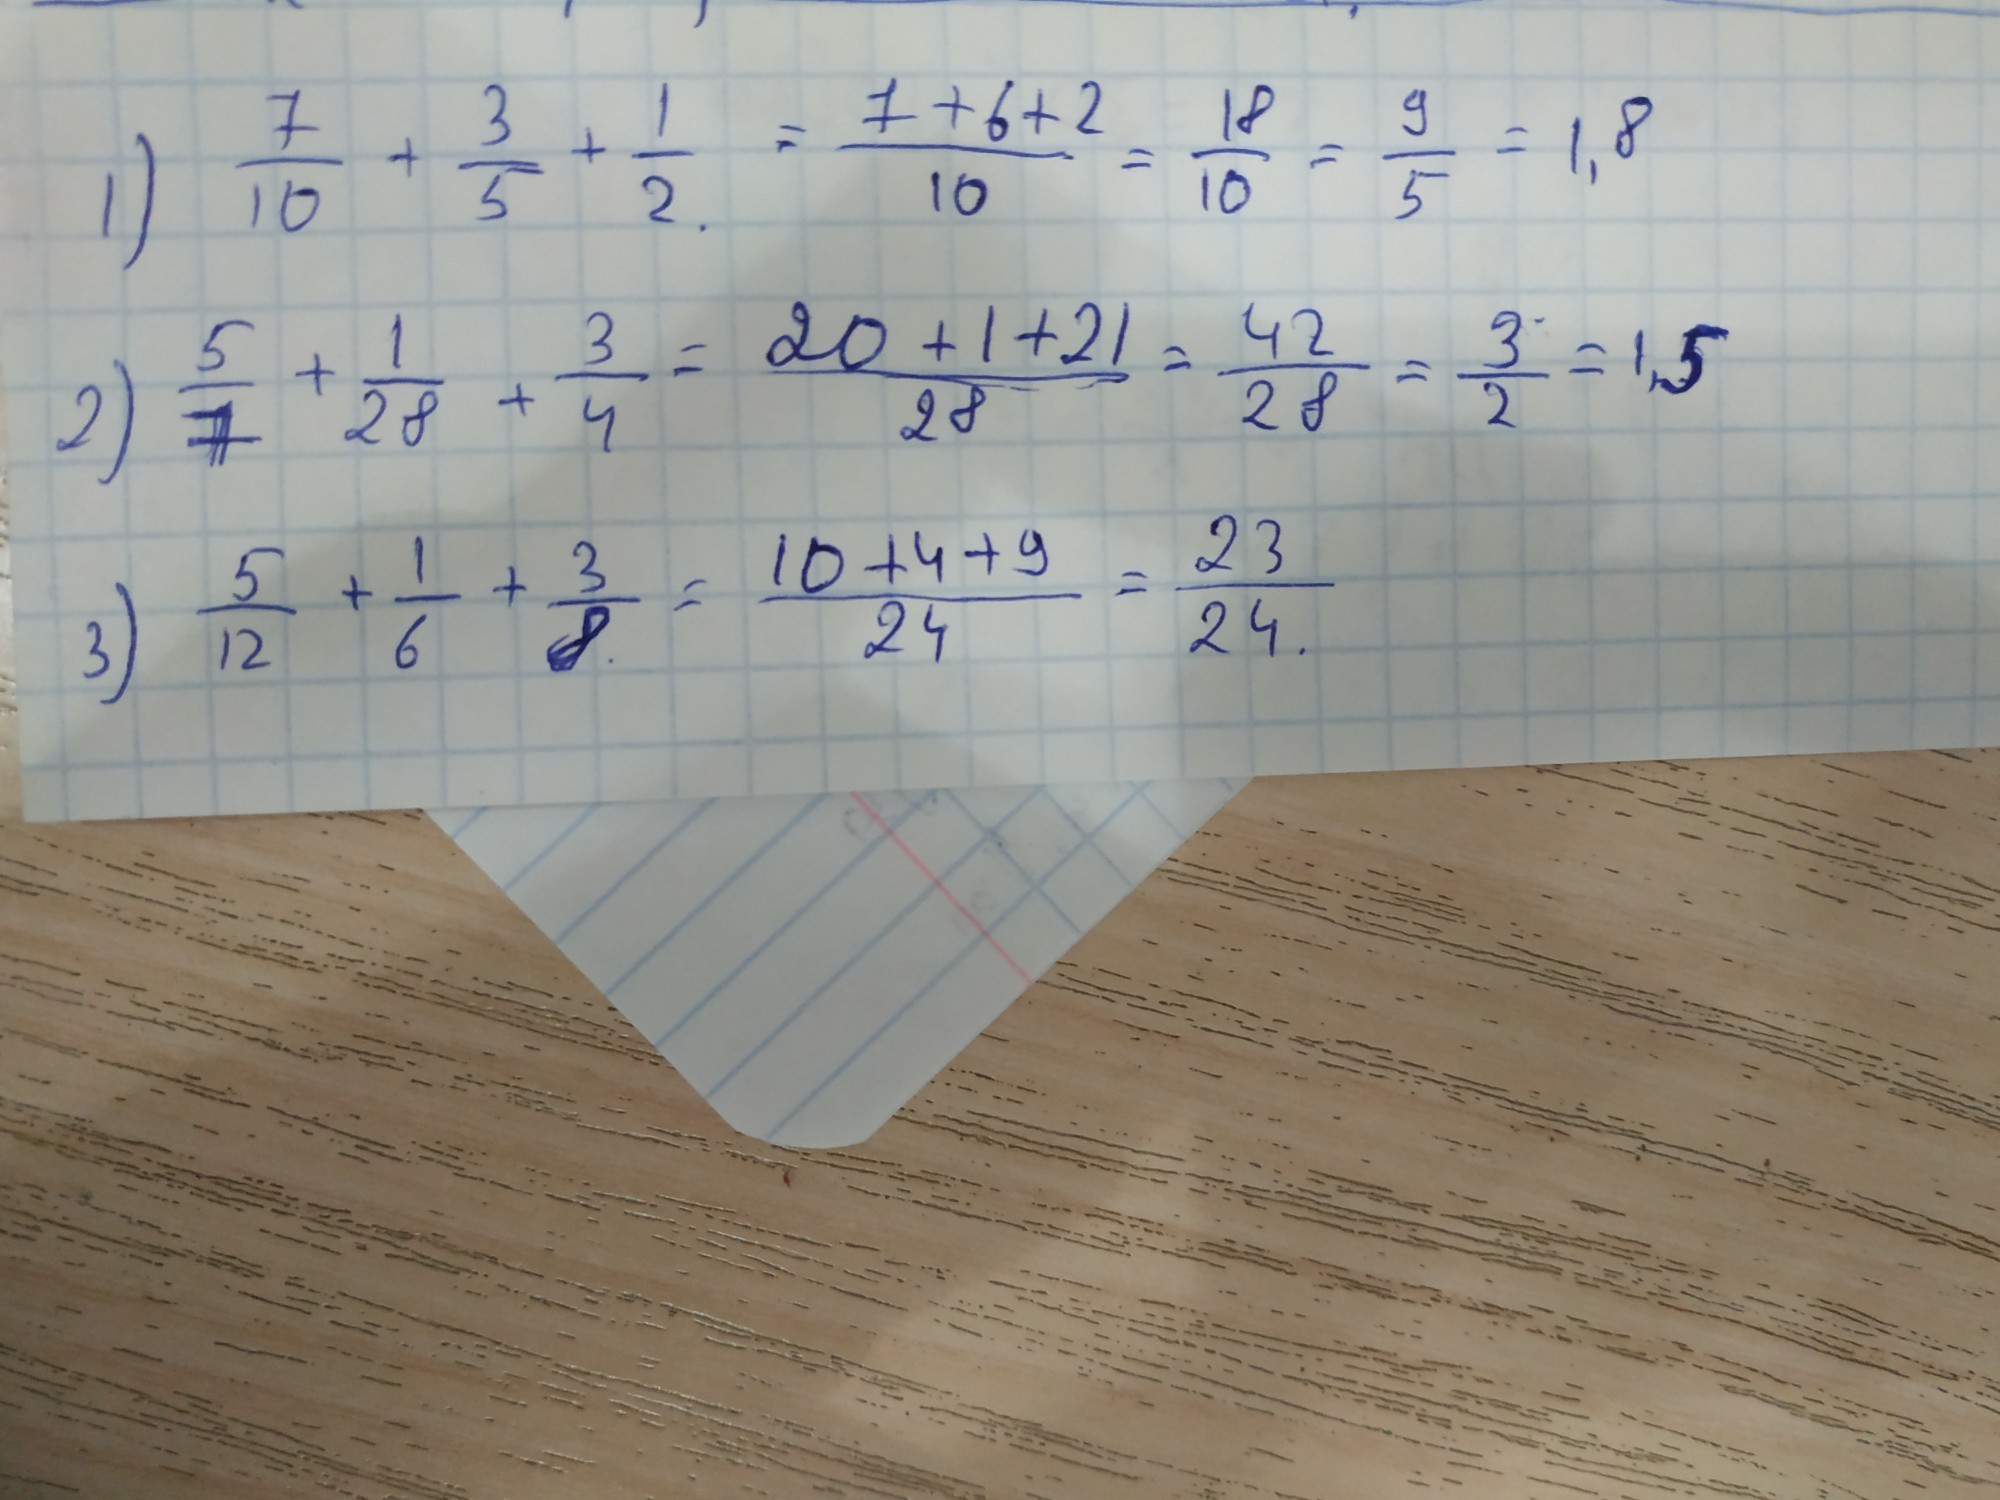 1) 7/10 + 3/5 + 1/2. = 7+6+2/10 = 18/10 = 9/5 = 1,8
2) 5/7 + 1/28 + 3/4 = 20+1+21/28 = 42/28 = 3/2 = 1,5
3) 5/12 + 1/6 + 3/8. = 10+4+9/24 = 23/24.